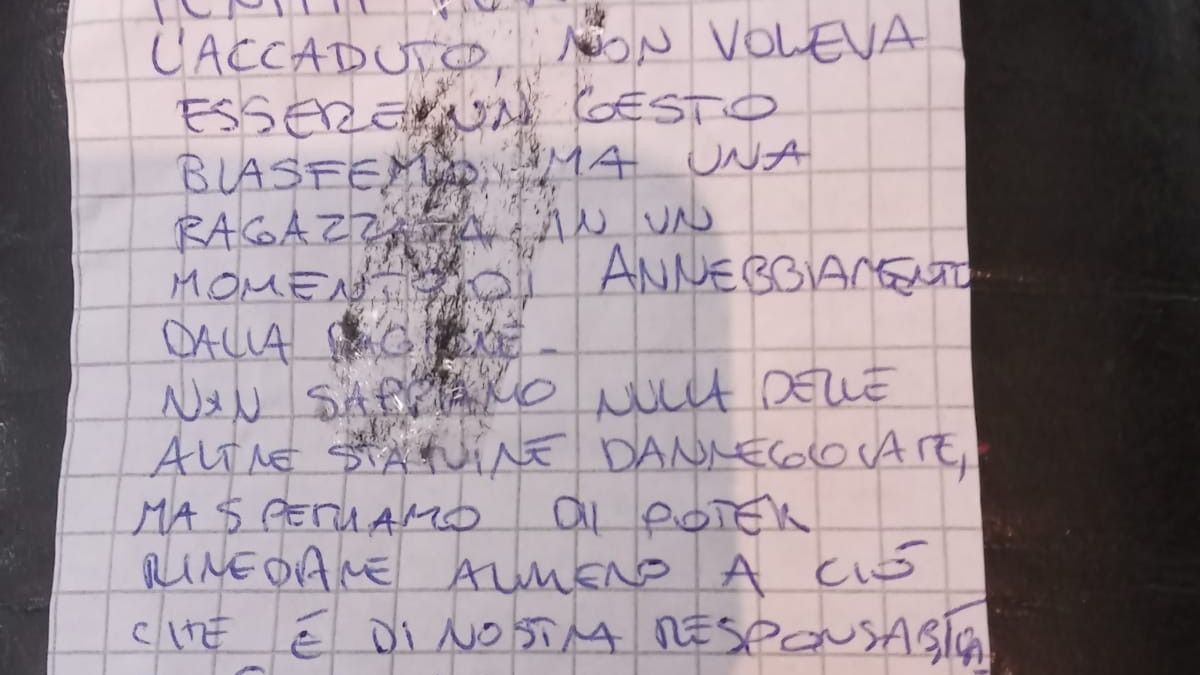 L'ACCADUTO, NON VOLEVA
ESSERE UN GESTO
BLASFEMO, MA UNA
RAGAZZATA IN UN
MOMENTO DI ANNEBBIAMENTO
DALLA RAGIONE -
NON SAPPIAMO NULLA DELLE
ALTRE STATUINE DANNEGGIATE,
MA SPERIAMO DI POTER
RIMEDIARE ALMENO A CIÒ
CHE È DI NOSTRA RESPONSABILITÀ